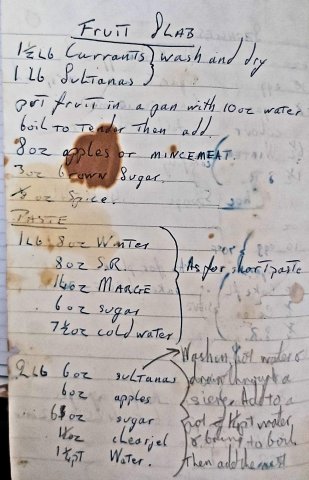 FRUIT SLAB
1½ lb Currants } wash and dry
1 lb Sultanas
put fruit in a pan with 10 oz water
boil to tender then add
8 oz apples or MINCEMEAT.
3 oz brown Sugar.
oz Spice
PASTE
1 lb 8 oz Winter
8 oz S.R.
As for short paste
oz MARGE
6 oz sugar
7½ oz cold water
2 lb 6 oz sultanas
6 oz apples
oz sugar
oz clearjel
pt Water.
Wash in hot water &
drain through a
sieve. Add to a
pot + pt water,
& bring to boil
then add the